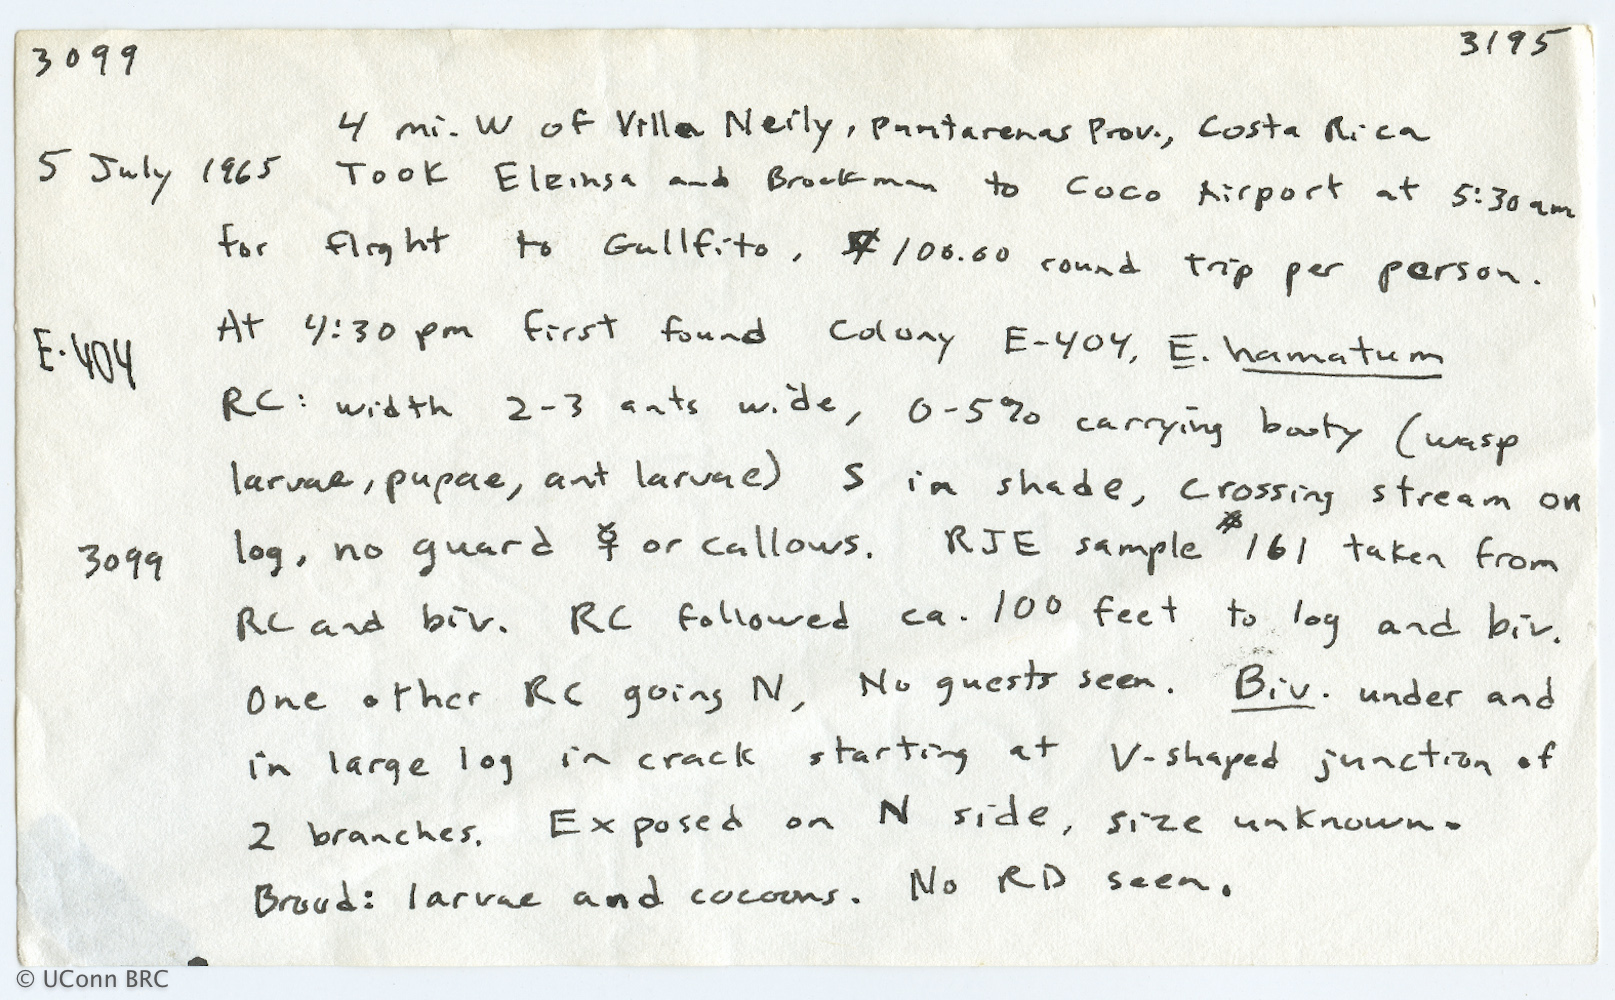 3099 3195
4 mi. W of Villa Neily, Puntarenas Prov., Costa Rica
5 July 1965 Took Eleinsa and Brockman to Coco Airport at 5:30 am
for flight to Gullfito, 100.60 round trip per person.
At 4:30 pm first found Colony E-404, E. hamatum
E-404
RC: width 2-3 ants wide, 0-5% carrying booty (wasp
larvae, pupae, ant larvae) S in shade, crossing stream on
3099 log, no guard ☿ or callows. RJE sample #161 taken from
RC and biv. RC followed ca. 100 feet to log and biv.
One other RC going N, No guests seen. Biv. under and
in large log in crack starting at V-shaped junction of
2 branches. Exposed on N side, size unknown.
Brood: larvae and cocoons. No RD seen.
© UConn BRC